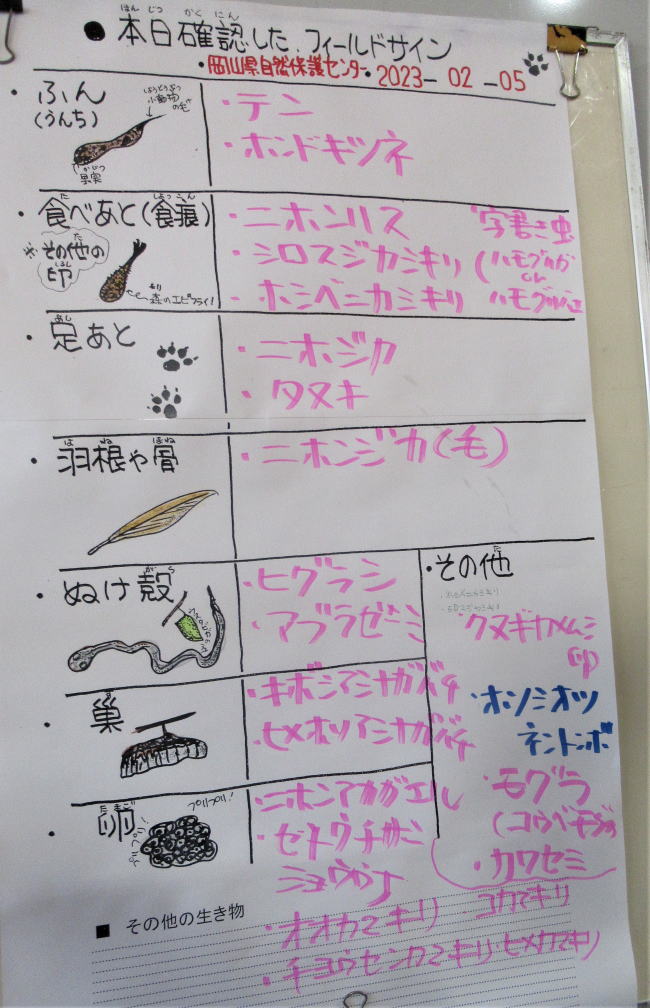 ● 本日確認した、フィールドサイン
・岡山県自然保護センター・ 2023－02－05
・ふん
(うんち)
小動物の毛
果実
・テン
・ホンドギツネ
・食べあと(食痕)
※その他の
印
森のエビフライ!
・ニホンリス
・シロスジカミキリ
・ホシベニカミキリ
・字書き虫
(ハモグリガ
or
ハモグリバエ
・足あと
・ニホジカ
・タヌキ
・羽根や骨
・ニホンジカ(毛)
・ぬけ殻
・ヒグラシ
・アブラゼミ
・巣
・キボシアシナガバチ
・ヒメホソアシナガバチ
・卵
プリプリ!
・ニホンアカガエル
・セトウチサン
ショウウオ
・その他
・クヌギカメムシ
卵
・ホソミオツ
ネントンボ
・モグラ
(コウベモグラ
・カワセミ
■ その他の生き物
・オオカマキリ
・コカマキリ
・チョウセンカマキリ・ヒメカマキリ